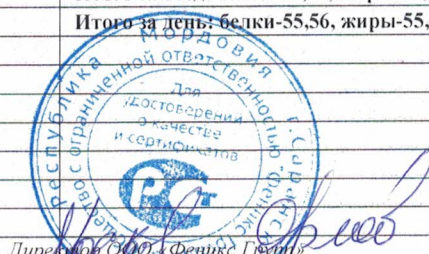 Итого за день: белки-55,56, жиры-55,
Республика Мордовия г. Саранск
Общество с ограниченной ответственностью "Феникс
Для
удостоверений
о качестве
и сертификатов
РСТ
Директор ООО «Феникс Групп»